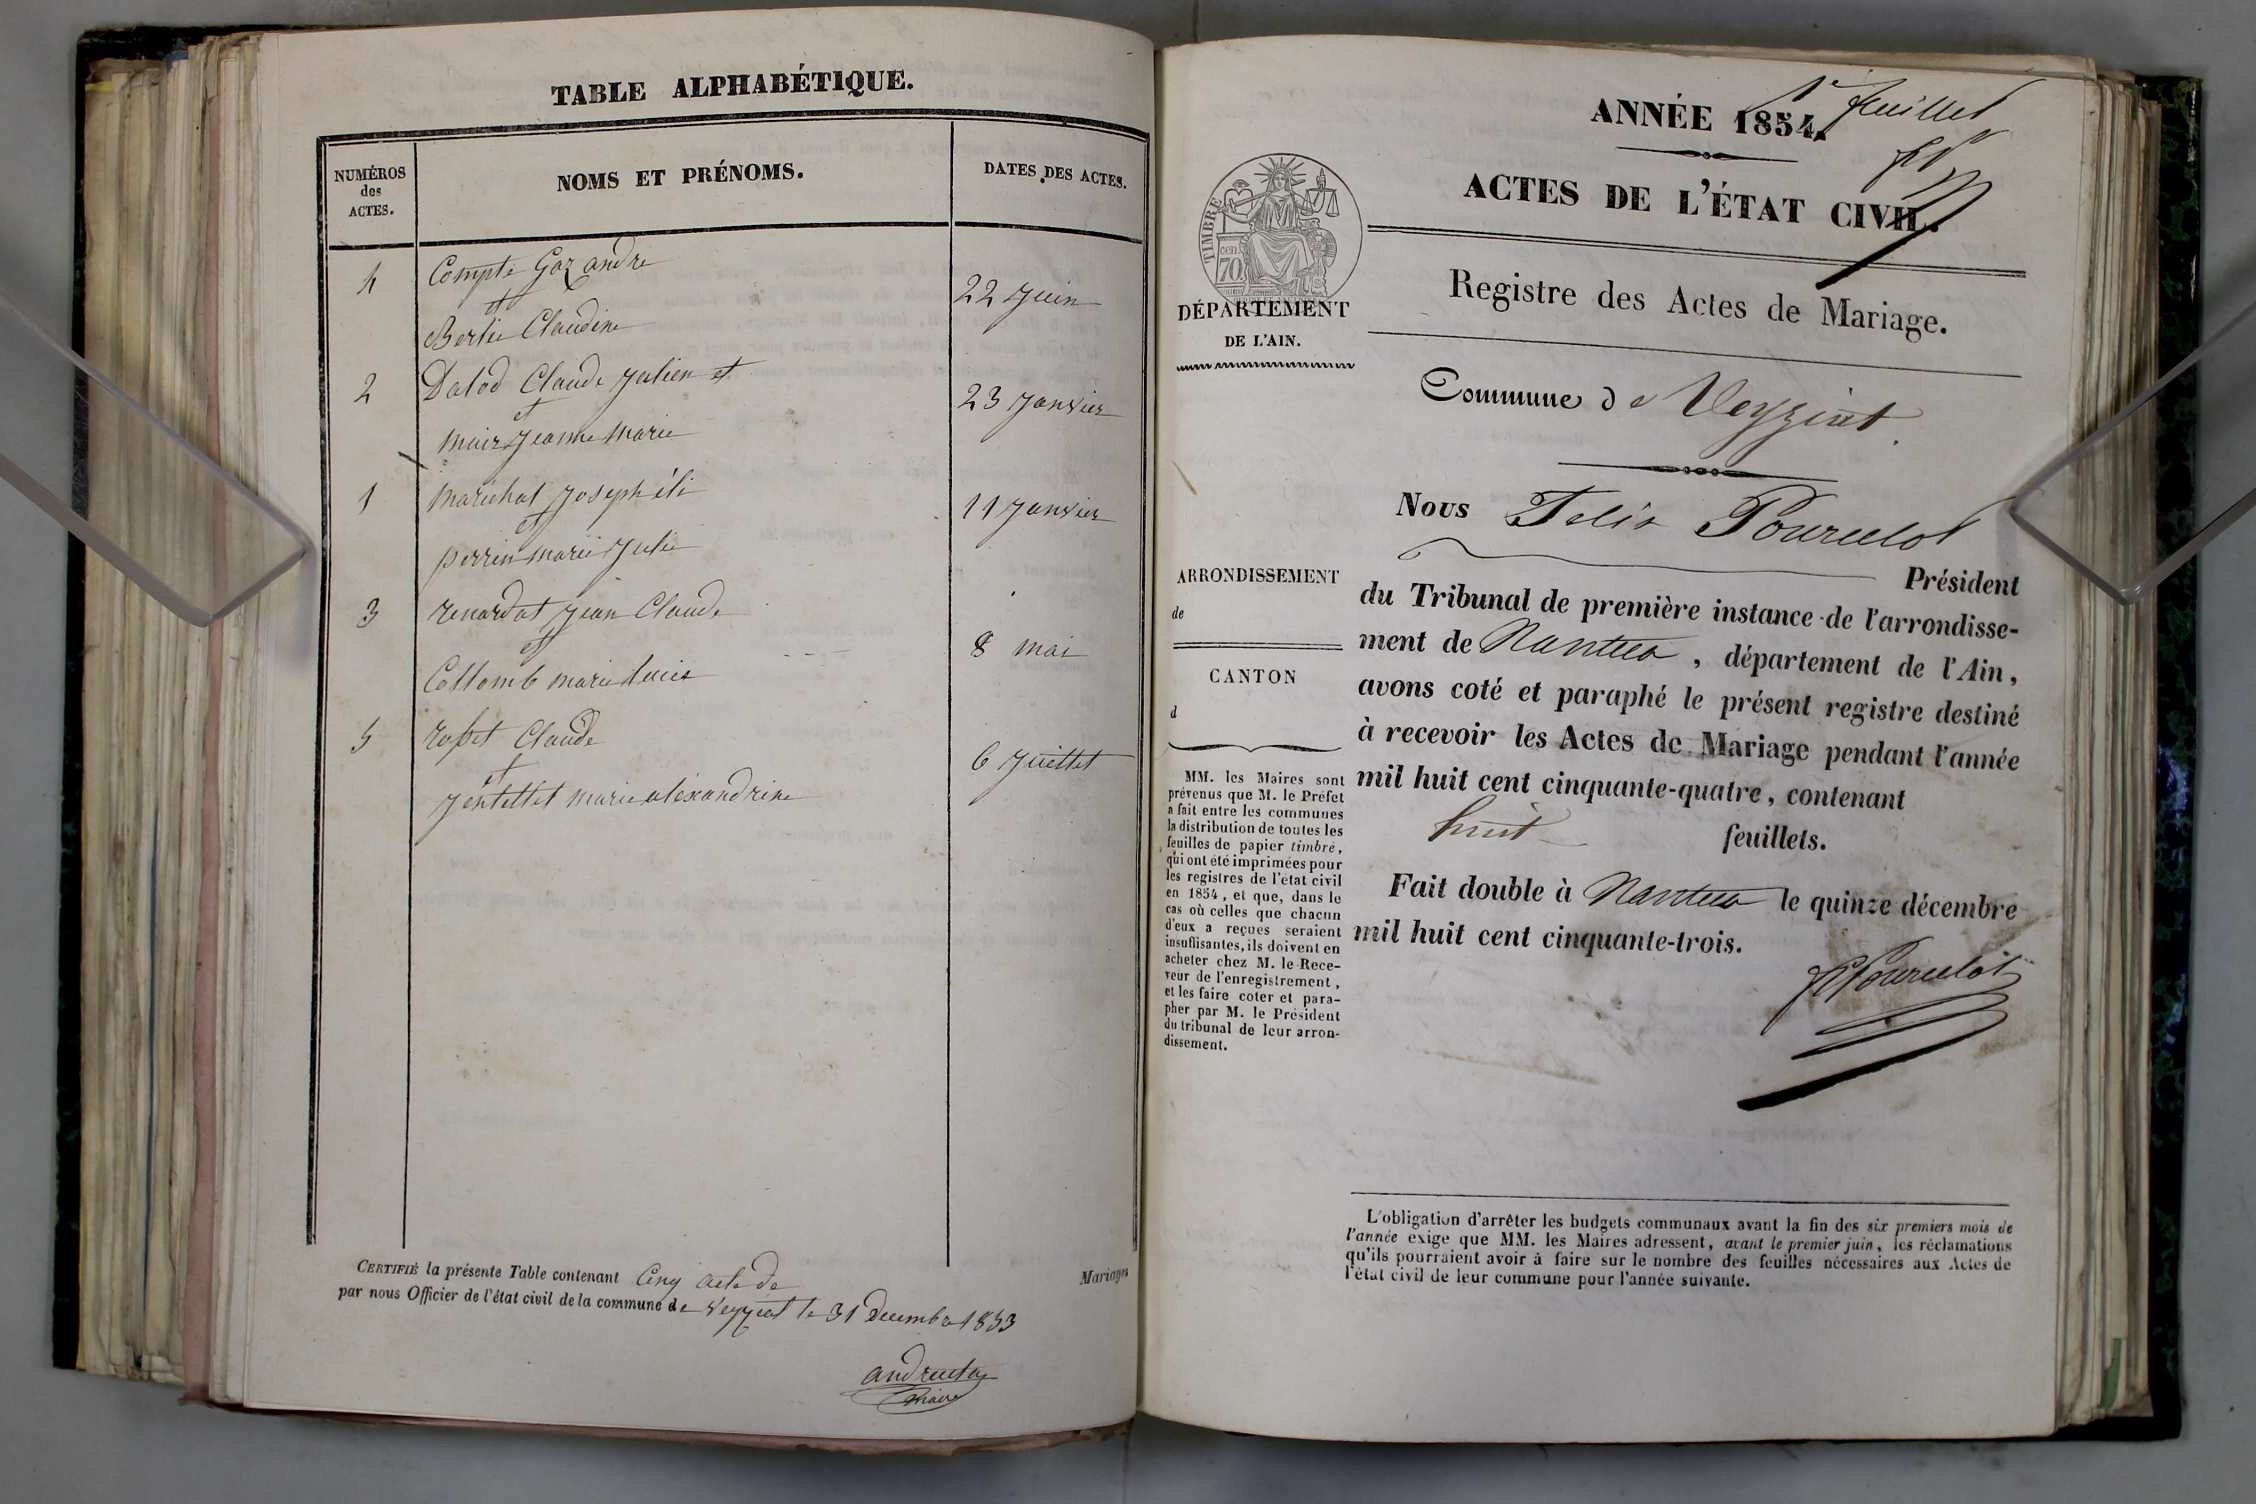 TABLE ALPHABÉTIQUE.
NUMÉROS
des
ACTES.
NOMS ET PRÉNOMS.
DATES DES ACTES.
4
et
22 Juin
Claudine
2
Dalod Claude Julien et
et
23 Janvier
Jeanne Marie
1
Marechal Joseph éli
et
11 Janvier
perrin Marie Julie
3
renardat Jean Claude
et
8 mai
Collomb marie
5
Claude
et
6 Juillet
marie alexandrine
CERTIFIÉ la présente Table contenant Cinq acte de Mariages
par nous Officier de l'état civil de la commune de Veyziat le 31 Decembre 1853
Maire
1er feuillet
ANNÉE 1854.
ACTES DE L'ÉTAT CIVIL.
TIMBRE
cen
70
DÉPARTEMENT
DE L'AIN.
Registre des Actes de Mariage.
Commune de Veyziat
Nous Felix Pourcelot
Président
du Tribunal de première instance de l'arrondisse-
ment de Nantua, département de l'Ain,
avons coté et paraphé le présent registre destiné
à recevoir les Actes de Mariage pendant l'année
mil huit cent cinquante-quatre, contenant
huit feuillets.
Fait double à Nantua le quinze décembre
mil huit cent cinquante-trois.
Pourcelot
ARRONDISSEMENT
de
CANTON
d
MM. les Maires sont
prévenus que M. le Préfet
a fait entre les communes
la distribution de toutes les
feuilles de papier timbré,
qui ont été imprimées pour
les registres de l'état civil
en 1854, et que, dans le
cas où celles que chacun
d'eux a reçues seraient
insuffisantes, ils doivent en
acheter chez M. le Rece-
veur de l'enregistrement,
et les faire coter et para-
pher par M. le Président
du tribunal de leur arron-
dissement.
L'obligation d'arrêter les budgets communaux avant la fin des six premiers mois de
l'année exige que MM. les Maires adressent, avant le premier juin, les réclamations
qu'ils pourraient avoir à faire sur le nombre des feuilles nécessaires aux Actes de
l'état civil de leur commune pour l'année suivante.